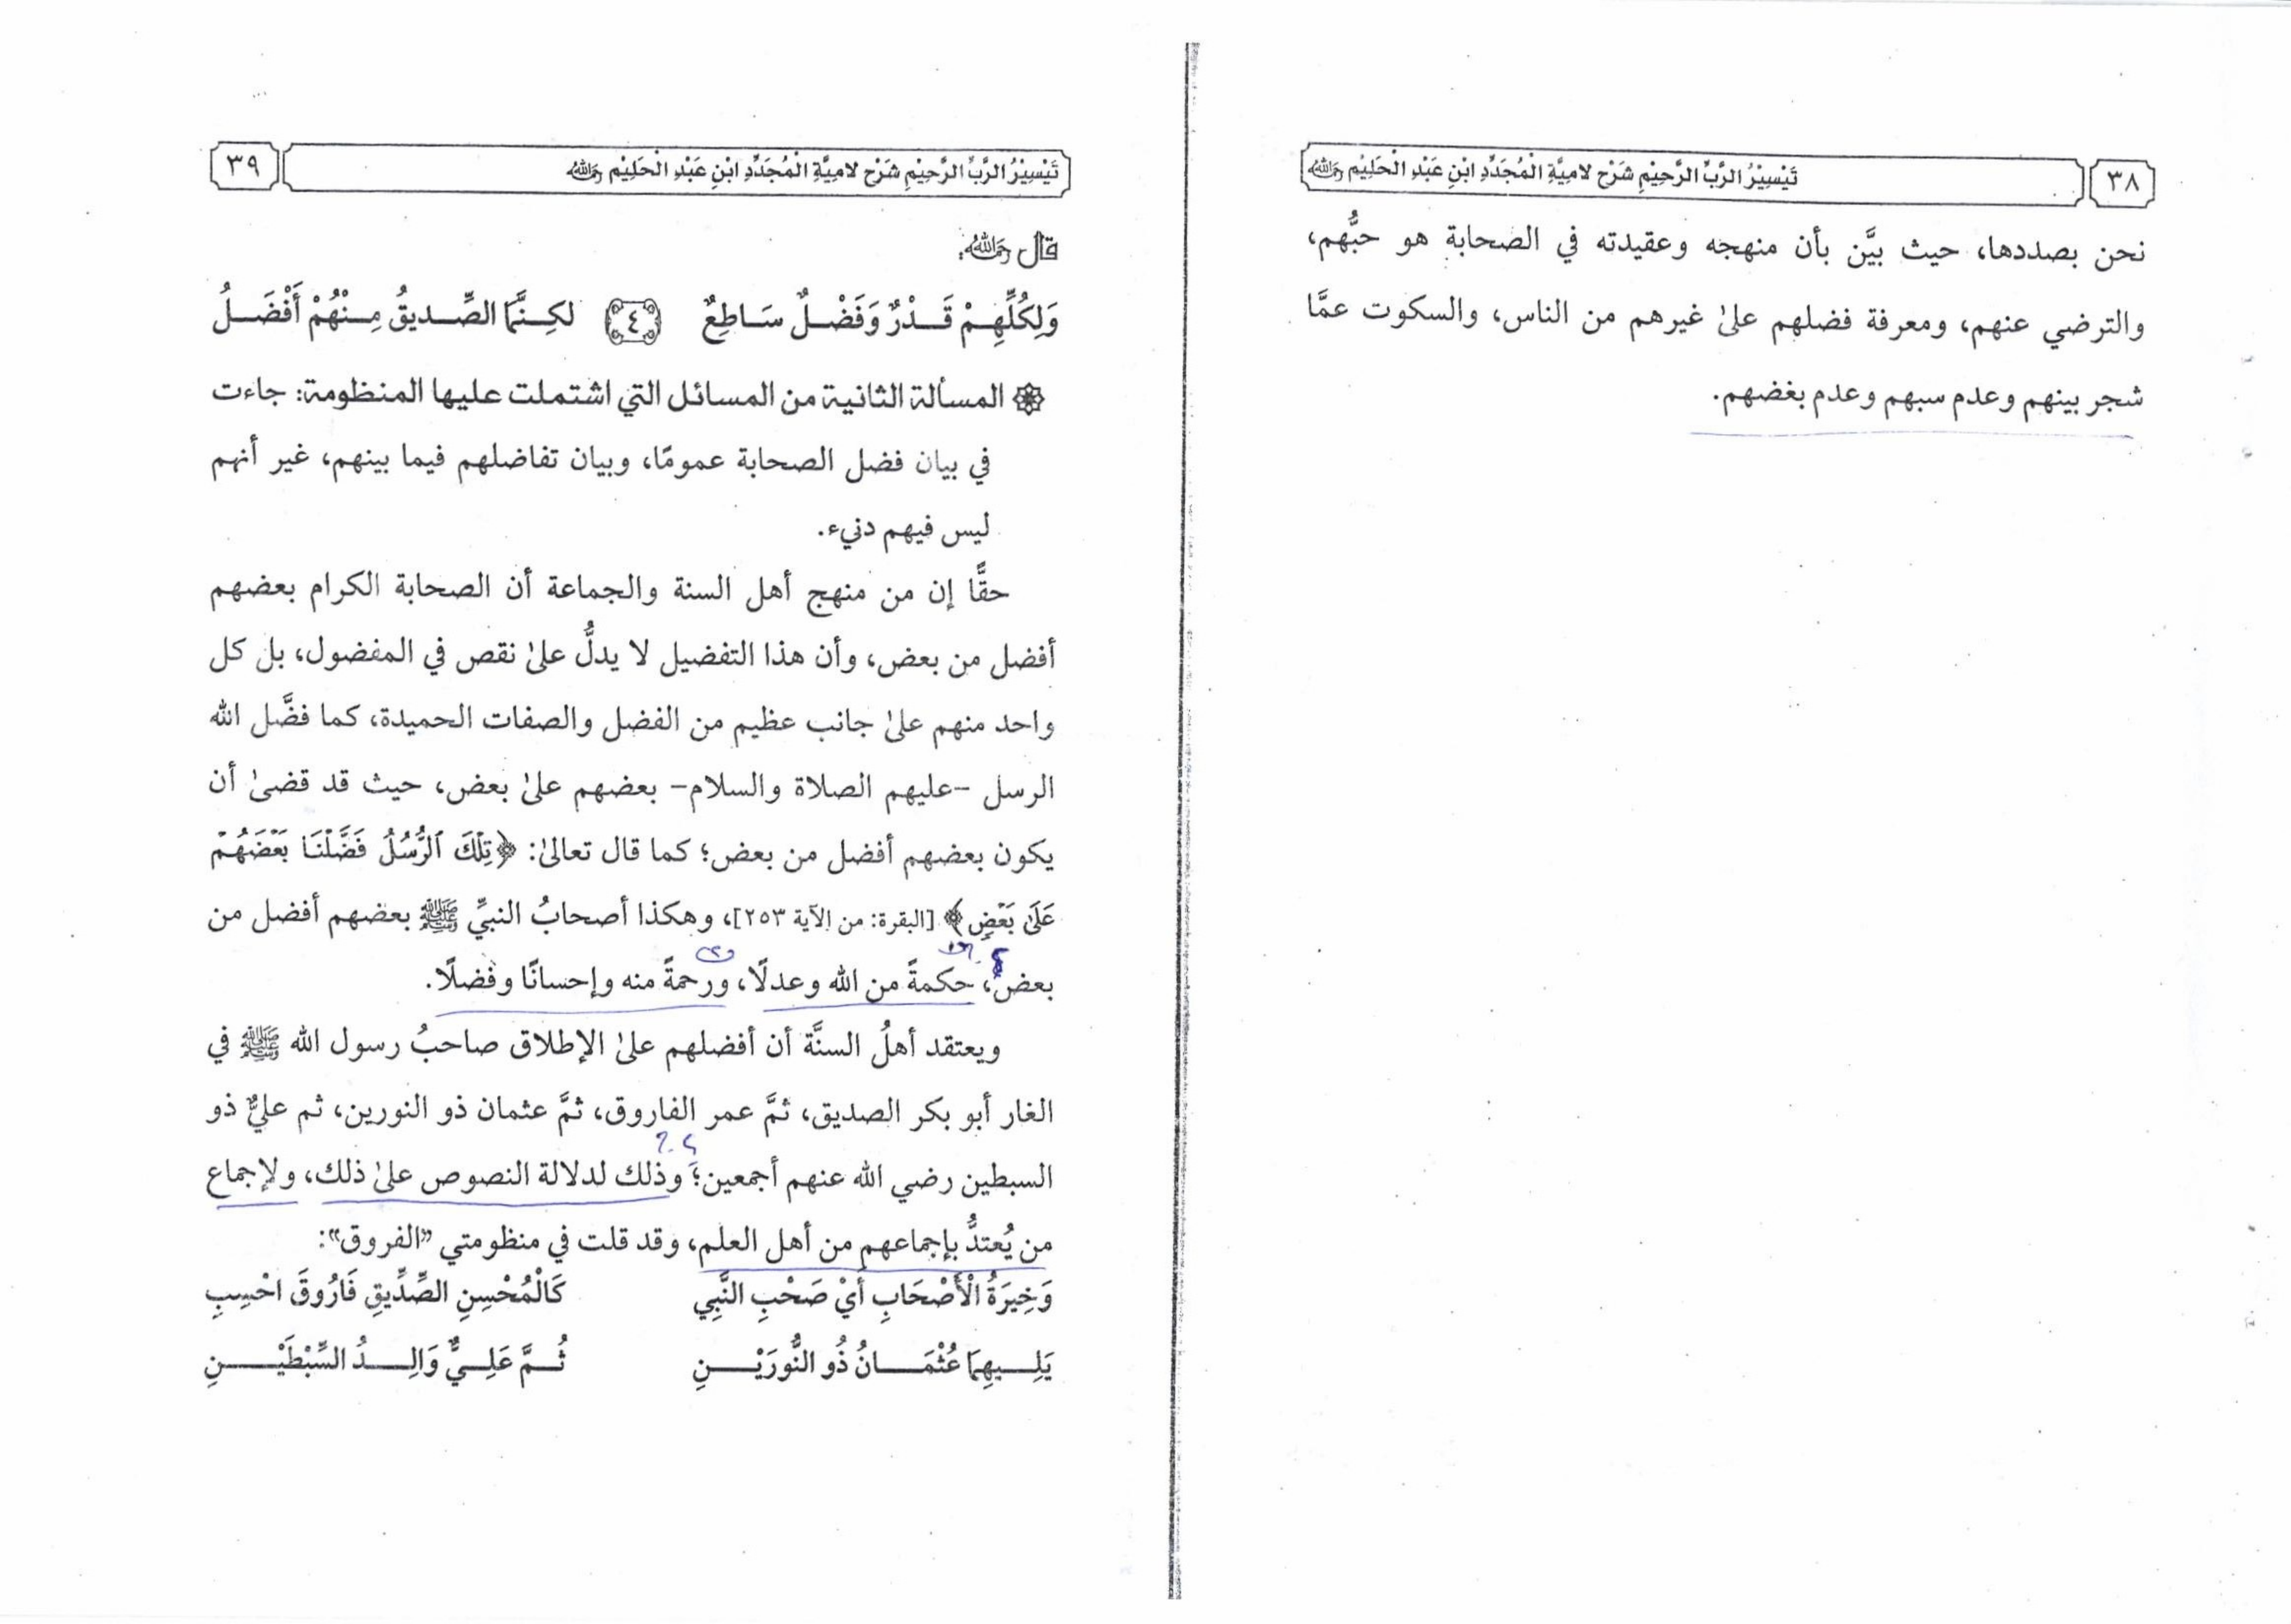 ٣٨
تَيْسِيْرُ الرَّبِّ الرَّحِيْمِ شَرْح لامِيَّةِ الْمُجَدِّدِ ابْنِ عَبْدِ الْحَلِيْمِ رَحِمَهُ اللهُ
نحن بصددها، حيث بيَّن بأن منهجه وعقيدته في الصحابة هو حبُّهم،
والترضي عنهم، ومعرفة فضلهم علىٰ غيرهم من الناس، والسكوت عمَّا
شجر بينهم وعدم سبهم وعدم بغضهم.
تَيْسِيْرُ الرَّبِّ الرَّحِيْمِ شَرْح لامِيَّةِ الْمُجَدِّدِ ابْنِ عَبْدِ الْحَلِيْمِ رَحِمَهُ اللهُ
٣٩
قال رَحِمَهُ اللهُ:
وَلِكُلِّهِمْ قَدْرٌ وَفَضْلٌ سَاطِعٌ ﴿٤﴾ لكِنَّمَا الصِّديقُ مِنْهُمْ أَفْضَلُ
المسألة الثانية من المسائل التي اشتملت عليها المنظومة: جاءت
في بيان فضل الصحابة عمومًا، وبيان تفاضلهم فيما بينهم، غير أنهم
ليس فيهم دنيء.
حقًّا إن من منهج أهل السنة والجماعة أن الصحابة الكرام بعضهم
أفضل من بعض، وأن هذا التفضيل لا يدلُّ علىٰ نقص في المفضول، بل كل
واحد منهم علىٰ جانب عظيم من الفضل والصفات الحميدة، كما فضَّل الله
الرسل -عليهم الصلاة والسلام- بعضهم علىٰ بعض، حيث قد قضىٰ أن
يكون بعضهم أفضل من بعض؛ كما قال تعالىٰ: ﴿تِلْكَ ٱلرُّسُلُ فَضَّلْنَا بَعْضَهُمْ
عَلَىٰ بَعْضٍ﴾ [البقرة: من الآية ٢٥٣]، وهكذا أصحابُ النبيِّ ﷺ بعضهم أفضل من
بعض، حكمةً من الله وعدلًا، ورحمةً منه وإحسانًا وفضلًا.
ويعتقد أهلُ السنَّة أن أفضلهم علىٰ الإطلاق صاحبُ رسول الله ﷺ في
الغار أبو بكر الصديق، ثمَّ عمر الفاروق، ثمَّ عثمان ذو النورين، ثم عليٌّ ذو
السبطين رضي الله عنهم أجمعين؛ وذلك لدلالة النصوص علىٰ ذلك، ولإجماع
من يُعتدُّ بإجماعهم من أهل العلم، وقد قلت في منظومتي "الفروق":
وَخِيرَةُ الْأَصْحَابِ أَيْ صَحْبِ النَّبِي كَالْمُحْسِنِ الصِّدِّيقِ فَارُوقَ احْسِبِ
يَلِيهِمَا عُثْمَانُ ذُو النُّورَيْنِ ثُمَّ عَلِيٌّ وَالِدُ السِّبْطَيْنِ